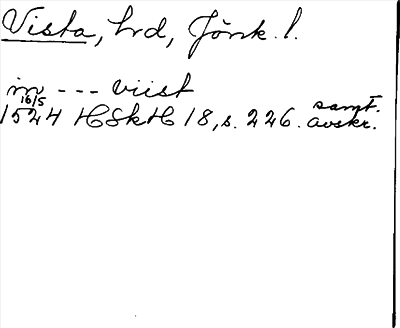 Vista, hrd, Jönk. l.
in --- viist
16/5
1524 HSkH 18, s. 226. samt. avskr.